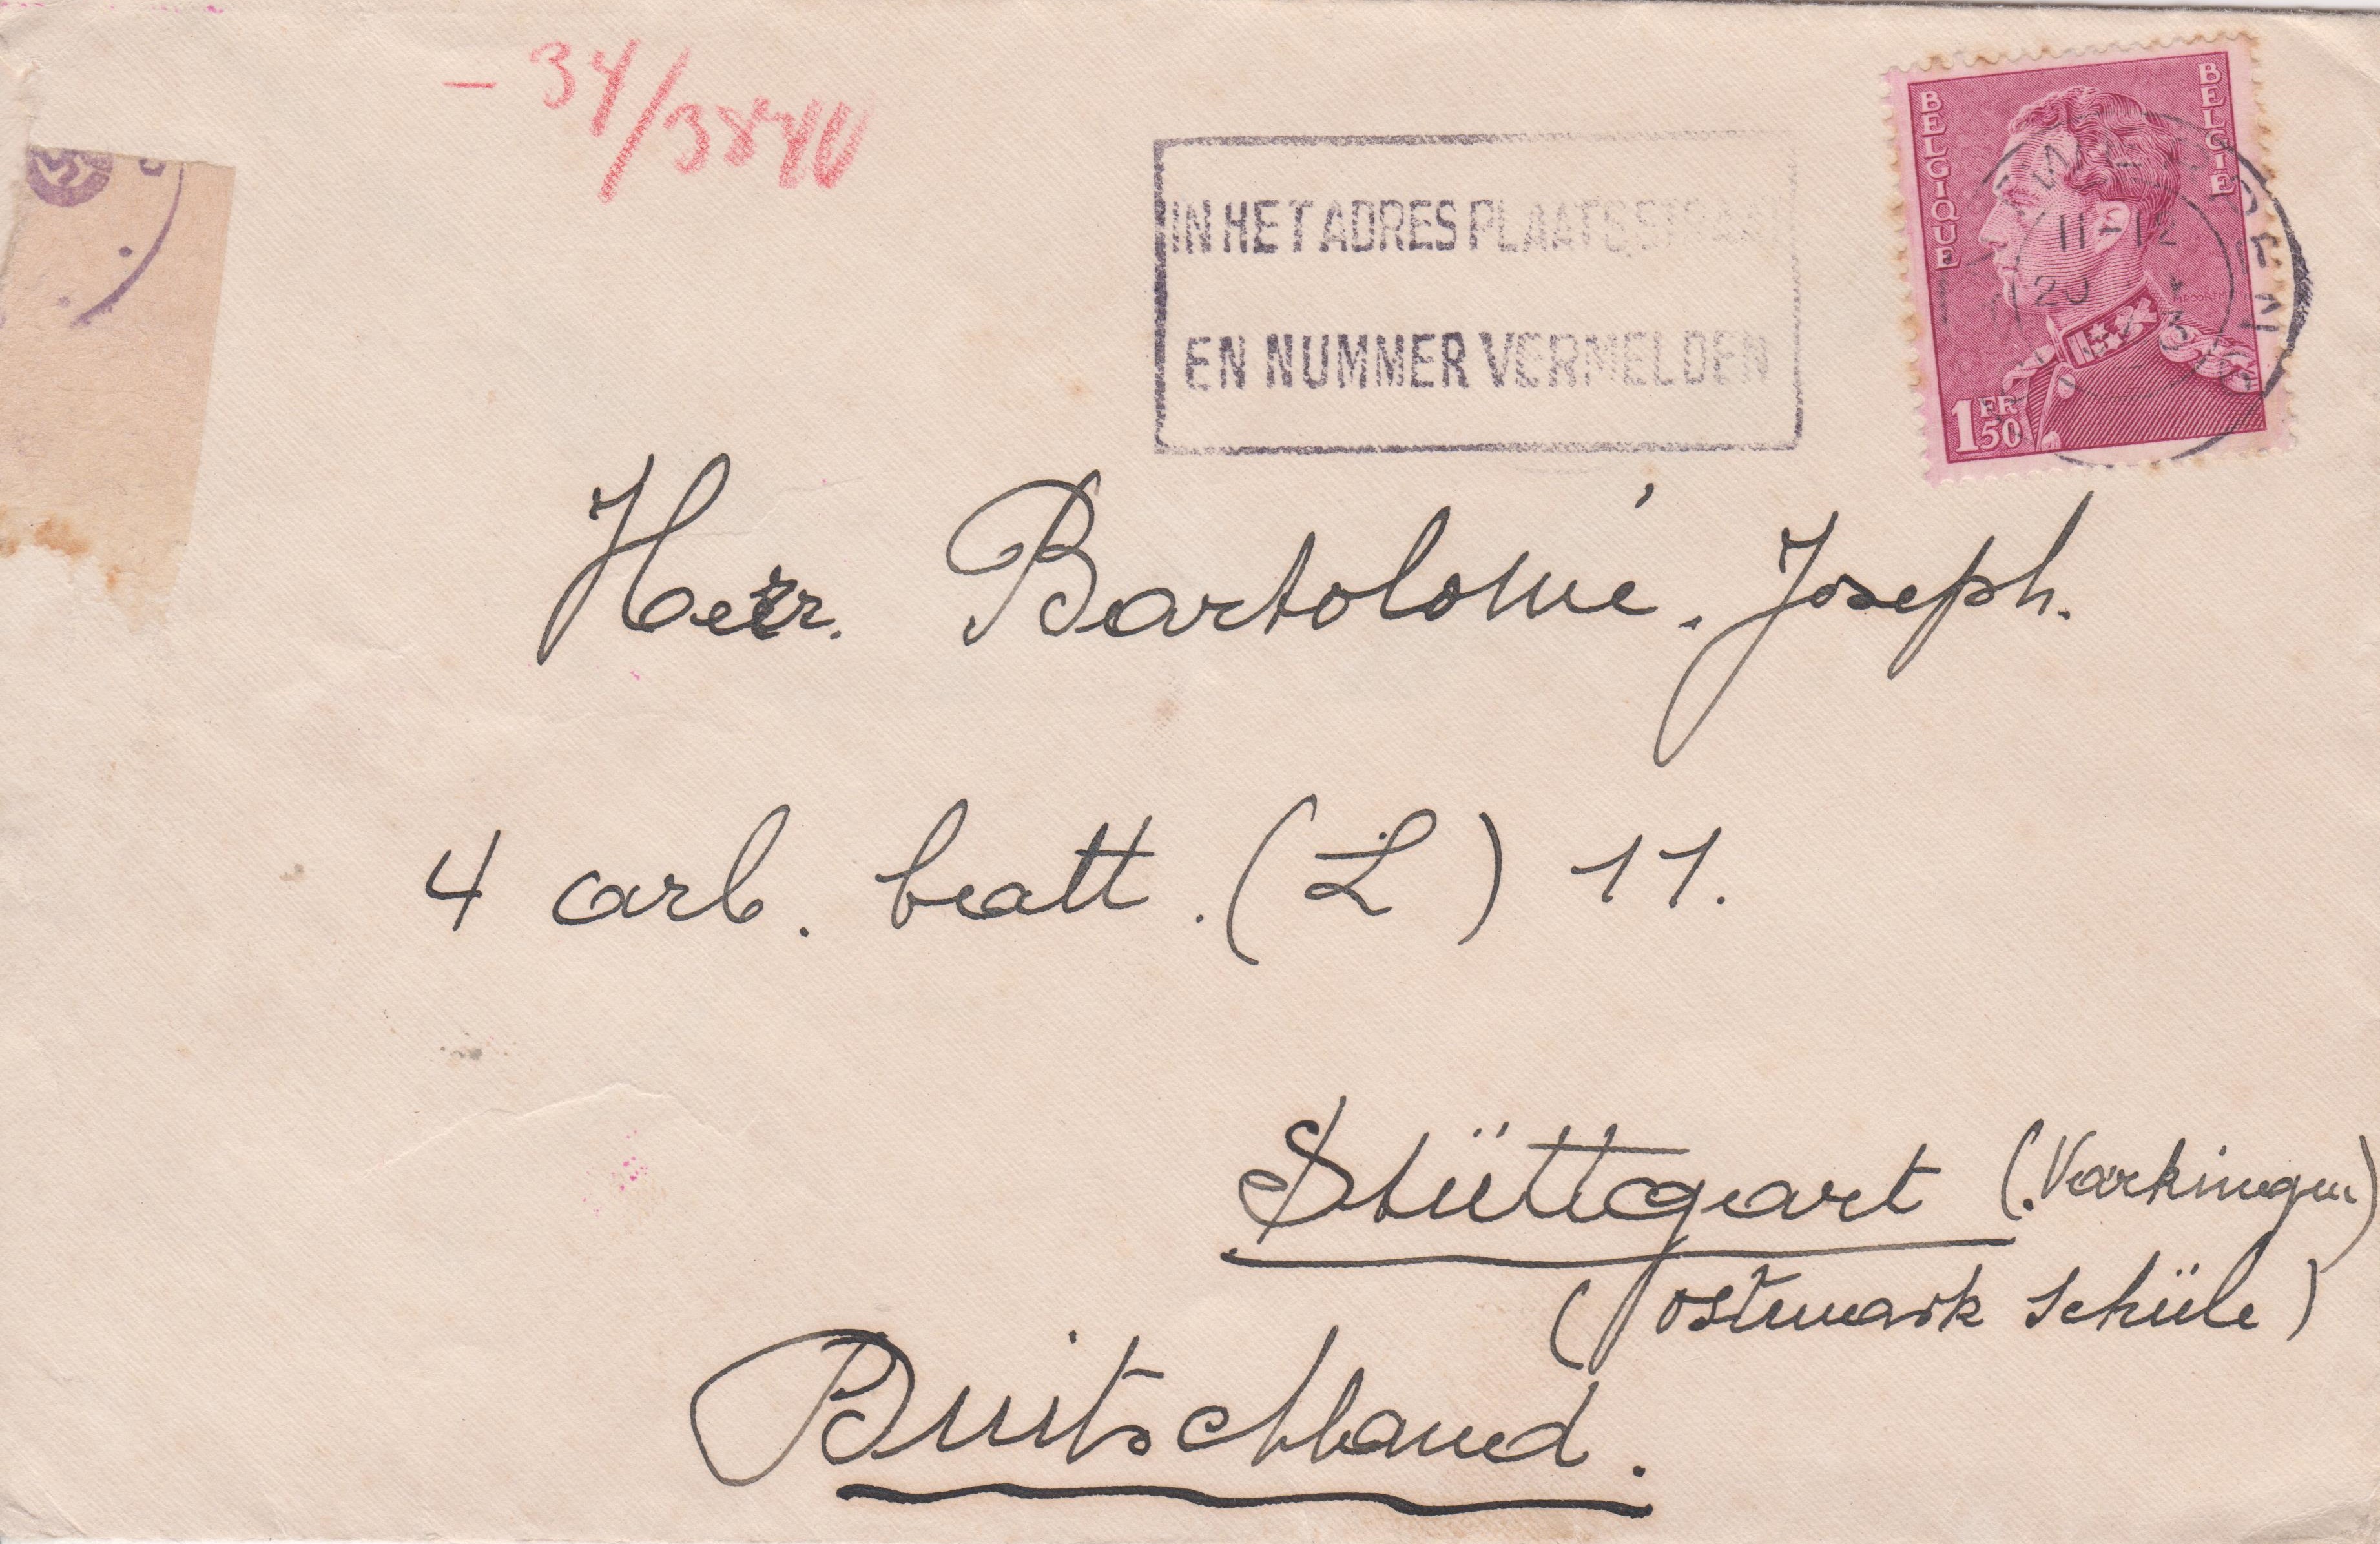 - 34/
BELGIQUE
BELGIË
1 FR 50
11-12
IN HET ADRES PLAATS STRAAT
EN NUMMER VERMELDEN
Herr. Bartolomé. Joseph.
4 arb. batt. (L) 11.
Stüttgart (Varkingen)
(ostmark schüle)
Duitschland.